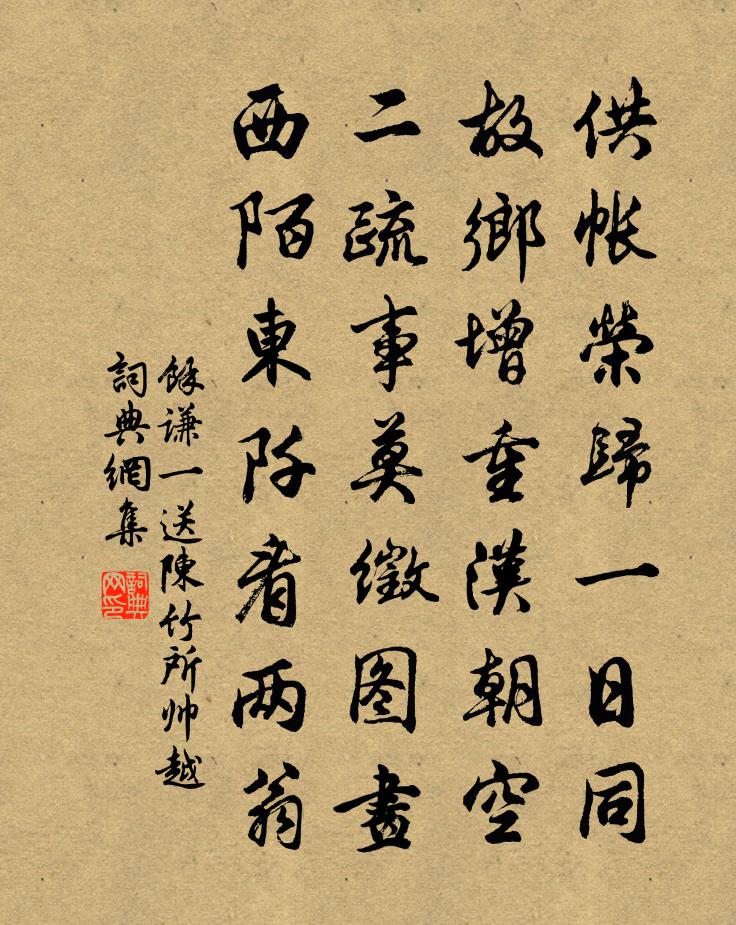 供帳榮歸一日同
故鄉增重漢朝空
二疏事莫徵图畫
西陌東阡看两翁
餘謙一送陳竹所帅越
詞典網集
詞典网印